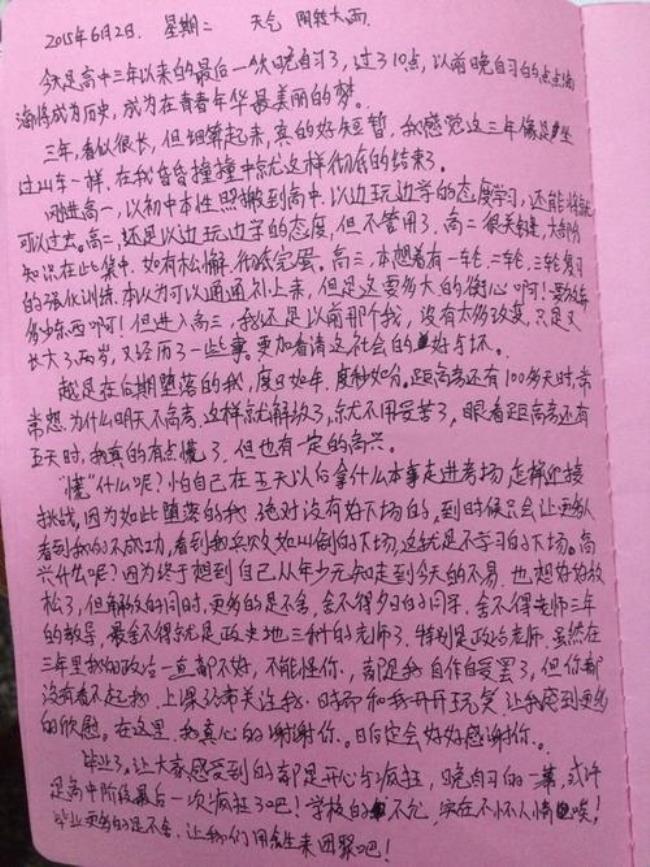 2015年6月2日. 星期二 天气 阴转大雨.
今天是高中三年以来的最后一次晚自习了,过了10点,以前晚自习的点点滴
将成为历史,成为在青春年华最美丽的梦。
三年,看似很长,但细算起来,真的好短暂,我感觉这三年像是坐
过山车一样,在我昏昏撞撞中就这样彻底的结束了。
刚进高一,以初中本性照搬到高中,以边玩边学的态度学习,还能将就
可以过去。高二,还是以边玩边学的态度,但不管用了,高二很关键,大部分
知识在此集中,如有松懈,彻底完蛋。高三,本想着有一轮、二轮、三轮复习
的强化训练,本以为可以通通补上来,但是这要多大的决心啊!要放弃
多少东西啊!但进入高三,我还是以前那个我,没有太多改变,只是又
长大了两岁,又经历了一些事。更加看清这社会的好与坏。
越是在后期堕落的我,度日如年,度秒如分。距高考还有100多天时,常
常想,为什么明天不高考,这样就解放了,就不用受苦了,眼看距高考还有
五天时,我真的有点慌了,但也有一定的高兴。
“慌”什么呢?怕自己在五天以后拿什么本事走进考场,怎样迎接
挑战,因为如此堕落的我,绝对没有好下场的,到时候只会让更多人
看到我的不成功,看到我兵败如山倒的下场,这就是不学习的下场。高
兴什么呢?因为终于想到自己从年少无知走到今天的不易,也想好好放
松了,但解放的同时,更多的是不舍,舍不得夕日的同学,舍不得老师三年
的教导,最舍不得就是政史地三科的老师了,特别是政治老师,虽然在
三年里我的政治一直都不好,不能怪你,都是我自作自受罢了,但你都
没有看不起我,上课经常关注我,时而和我开开玩笑,让我感到更多
的欣慰。在这里,我真心的谢谢你。日后定会好好感谢你。
毕业了,让大家感受到的都是开心与疯狂,晚自习的一幕,或许
是高中阶段最后一次疯狂了吧!学校的不允,实在不怀人情唉!
毕业更多的是不舍,让我们用余生来团聚吧!